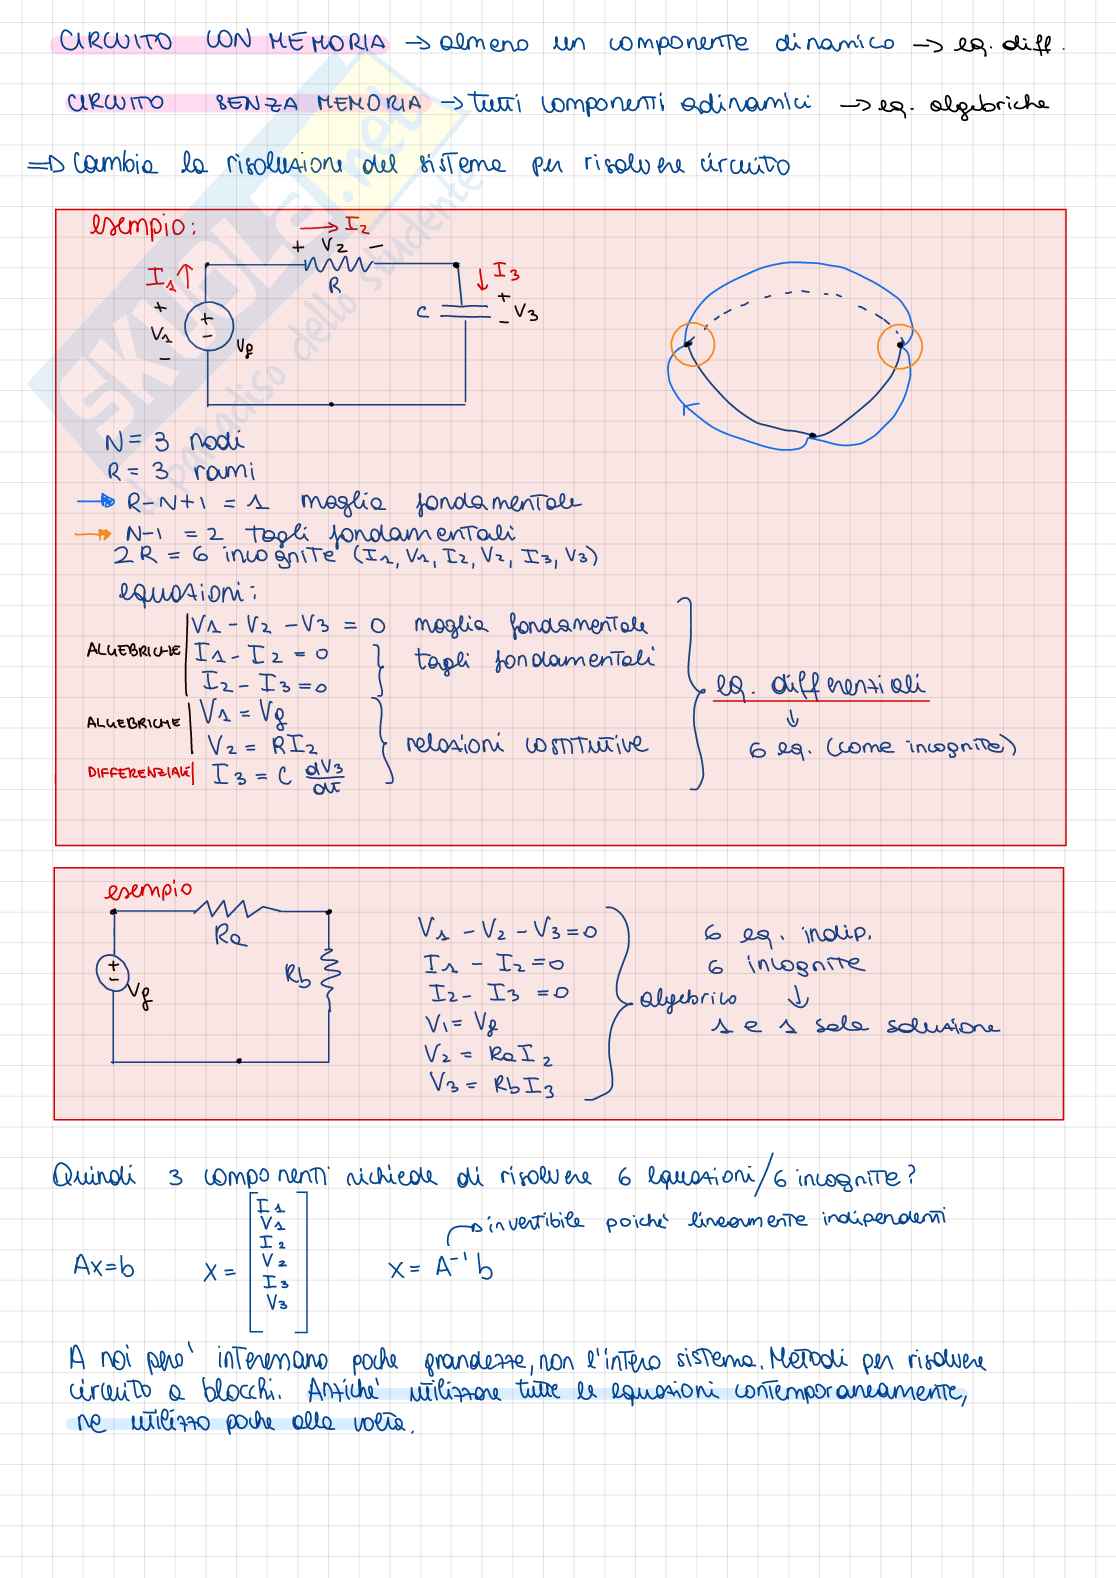 CIRCUITO CON MEMORIA → almeno un componente dinamico → eq. diff.
CIRCUITO SENZA MEMORIA → tutti componenti adinamici → eq. algebriche
⇒ Cambia la risoluzione del sistema per risolvere circuito
esempio:
→ I2
+ V2 −
I1 ↑
R
↓ I3
+
V1
−
+
−
Vg
C
+
V3
−
N = 3 nodi
R = 3 rami
→ R-N+1 = 1 maglia fondamentale
→ N-1 = 2 tagli fondamentali
2R = 6 incognite (I1, V1, I2, V2, I3, V3)
equazioni:
V1 - V2 - V3 = 0 maglia fondamentale
ALGEBRICHE I1 - I2 = 0
tagli fondamentali
I2 - I3 = 0
eq. differenziali
ALGEBRICHE V1 = Vg
V2 = RI2
relazioni costitutive
↓
6 eq. (come incognite)
DIFFERENZIALE I3 = C dV3/dt
esempio
Ra
+
−
Vg
Rb
V1 - V2 - V3 = 0
I1 - I2 = 0
I2 - I3 = 0
V1 = Vg
V2 = RaI2
V3 = RbI3
algebrico
6 eq. indip.
6 incognite
↓
1 e 1 sola soluzione
Quindi 3 componenti richiede di risolvere 6 equazioni/6 incognite?
→ invertibile poiché linearmente indipendenti
Ax=b x = [I1 V1 I2 V2 I3 V3] x = A⁻¹ b
A noi pero' interessano poche grandezze, non l'intero sistema. Metodi per risolvere
circuito a blocchi. Anziché utilizzare tutte le equazioni contemporaneamente,
ne utilizzo poche alla volta.
SKUOLA.net
il paradiso dello studente